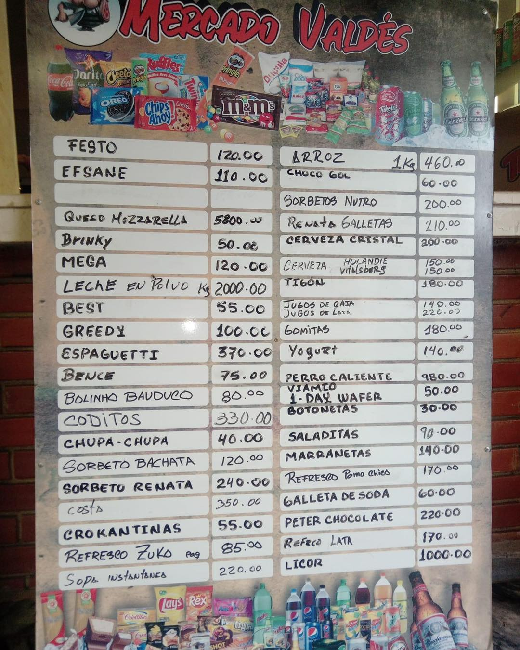 MERCADO VALDÉS
FESTO 120.00
EFSANE 110.00
QUESO MOZZARELLA 5800.00
Brinky 50.00
MEGA 120.00
LECHE EN POLVO Kg 2000.00
BEST 55.00
GREEDY 100.00
ESPAGUETTI 370.00
BENCE 75.00
BOLINHO BAUDUCO 80.00
CODITOS 330.00
CHUPA-CHUPA 40.00
SORBETO BACHATA 120.00
SORBETO RENATA 240.00
COSTA 350.00
CROKANTINAS 55.00
REFRESCO ZUKO Paq 85.00
SOPA INSTANTANEA 220.00
ARROZ 1Kg 460.00
CHOCO GOL 60.00
SORBETOS NUTRO 200.00
RENATA GALLETAS 210.00
CERVEZA CRISTAL 200.00
CERVEZA HOLANDIE 150.00
VITALSBERG 150.00
TIGON 180.00
JUGOS DE CAJA 140.00
JUGOS DE LATA 220.00
GOMITAS 180.00
Yogurt 140.00
PERRO CALIENTE 980.00
VIAMIO
1-DAY WAFER 50.00
BOTONETAS 30.00
SALADITAS 90.00
MARRANETAS 140.00
REFRESCO Pomo Chico 170.00
GALLETA DE SODA 60.00
PETER CHOCOLATE 220.00
Refeco LATA 170.00
LICOR 1000.00
Coca-Cola
Doritos
Cheetos
Ruffles
OREO
CHIPS AHOY!
Pringles
m&m's
Lays
Rex
pepsi